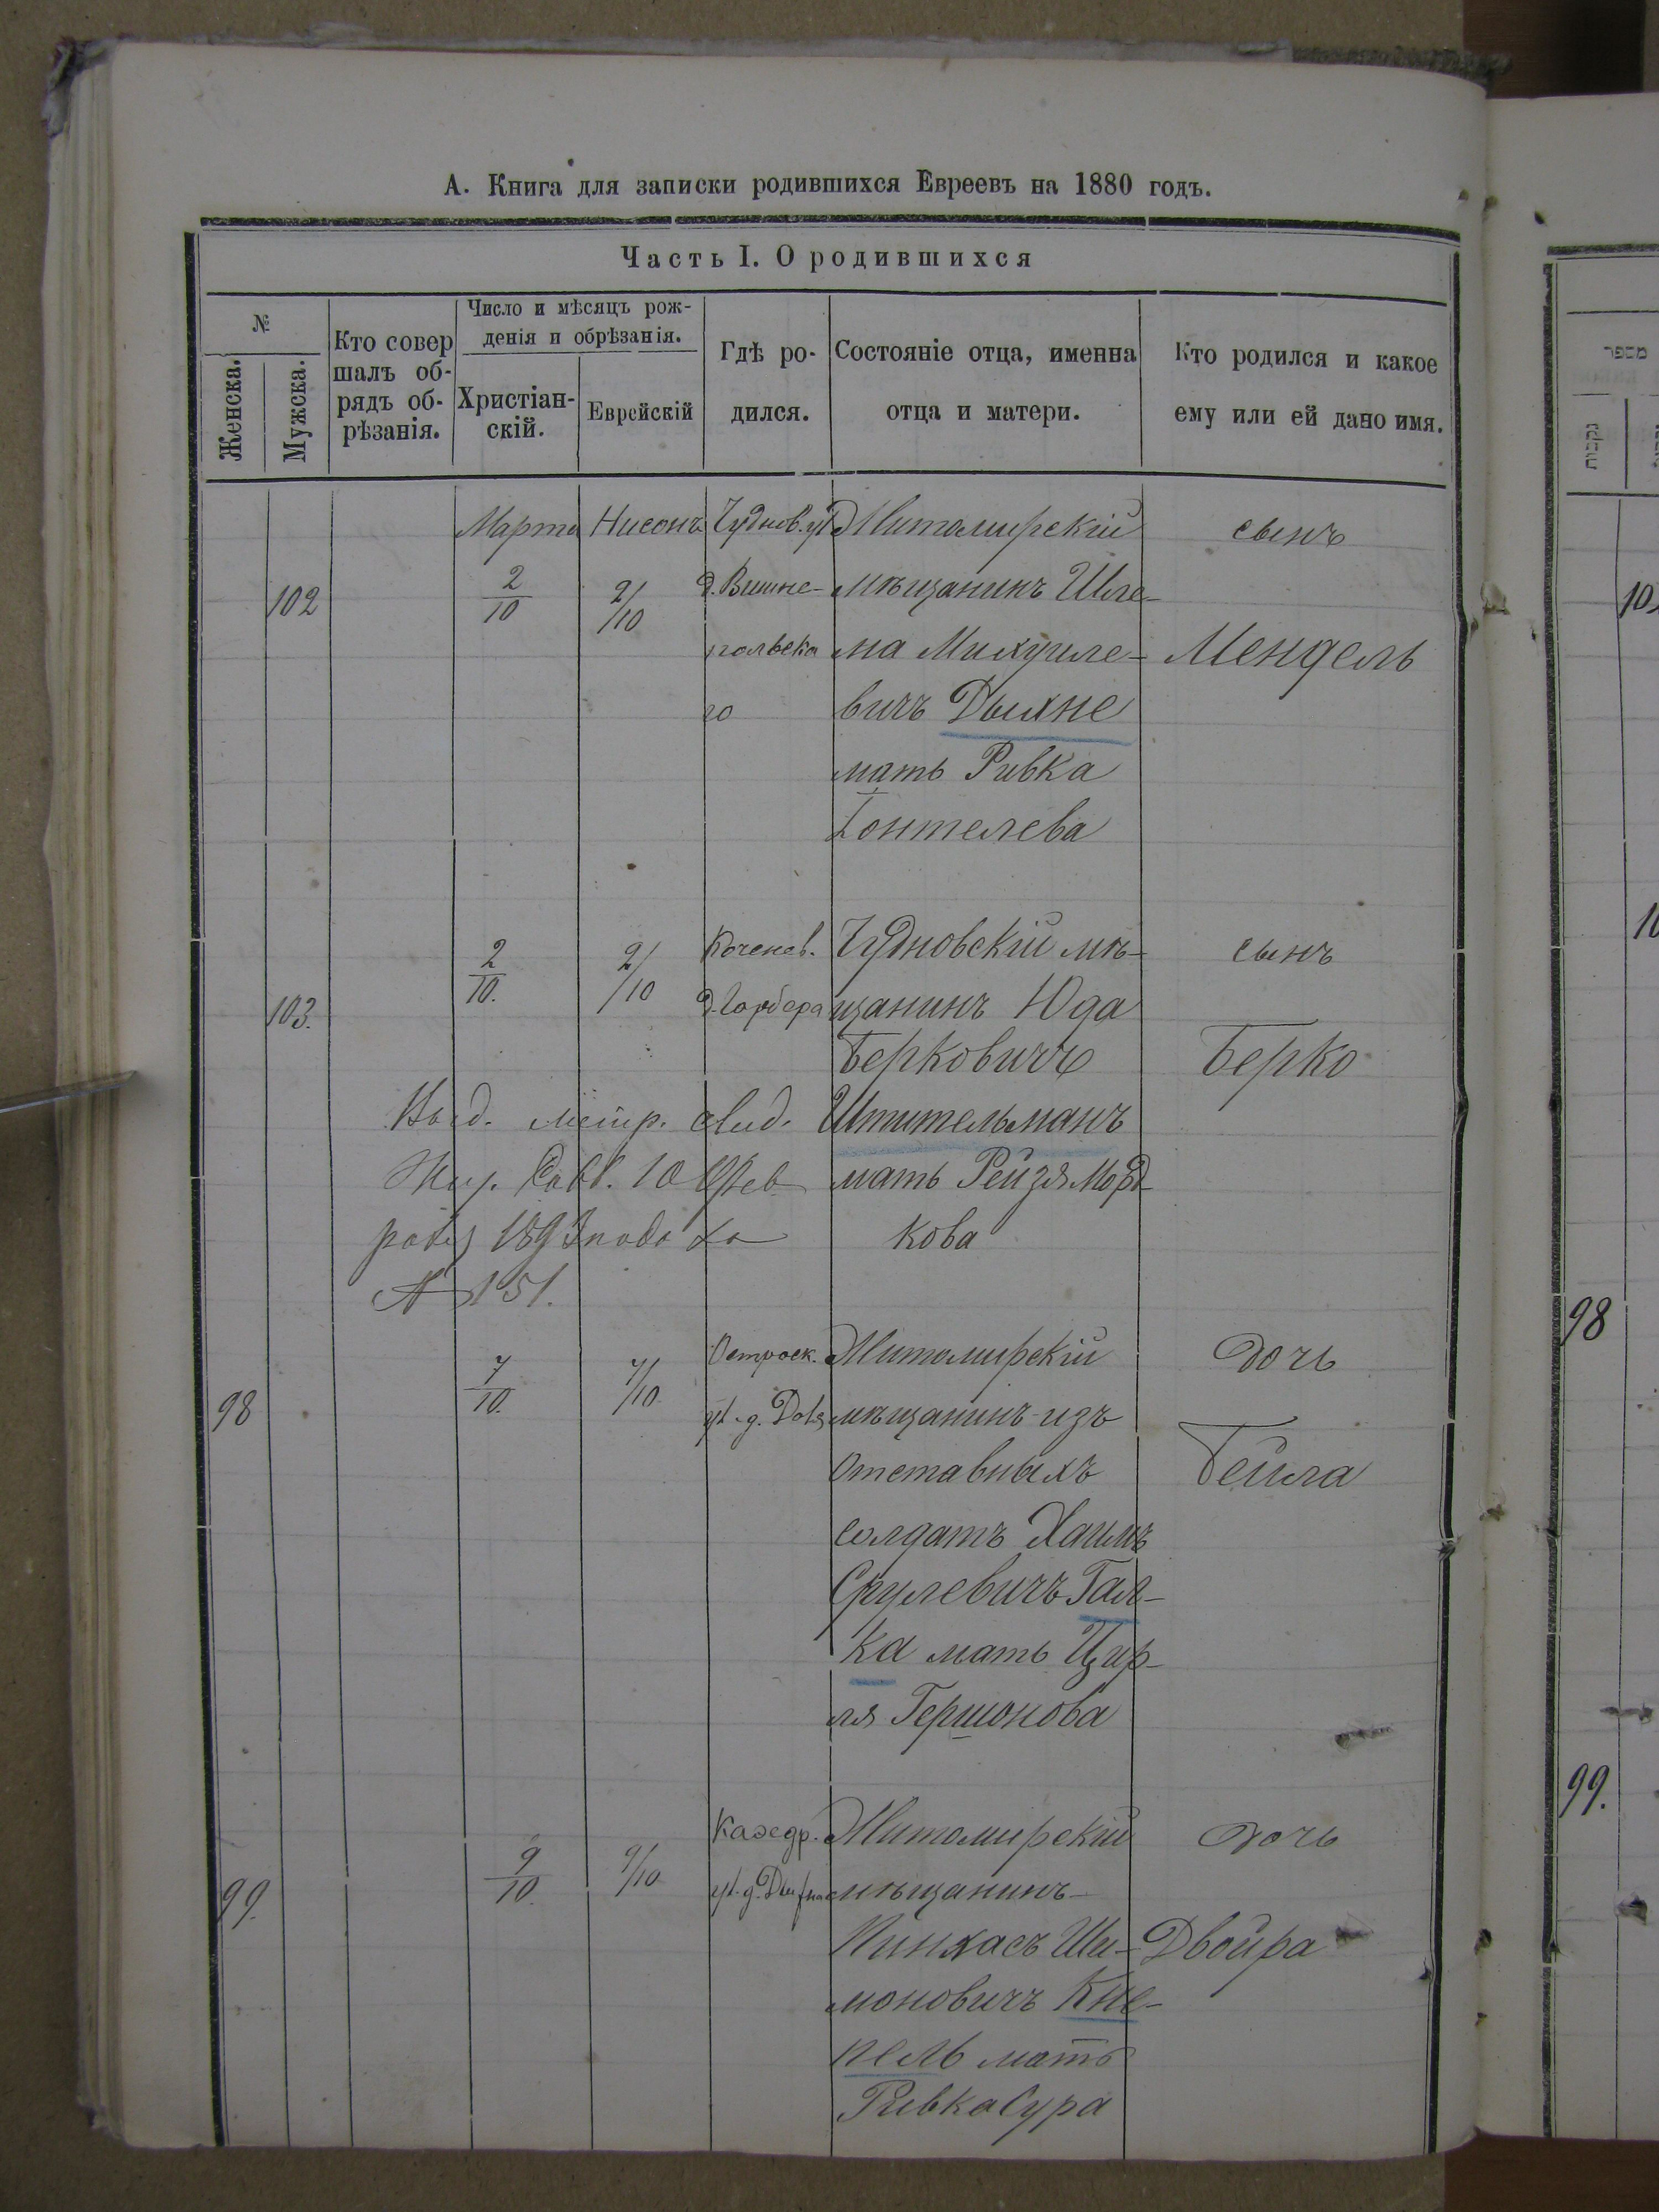 А. Книга для записки родившихся Евреевъ на 1880 годъ.
Часть I. О родившихся
№
Женска.
Мужска.
Кто совер
шалъ об-
рядъ об-
рѣзанія.
Число и мѣсяцъ рож-
денія и обрѣзанія.
Христіан-
скій.
Еврейскій
Гдѣ ро-
дился.
Состояніе отца, именна
отца и матери.
Кто родился и какое
ему или ей дано имя.
102
Марта
2/10
Нисонъ
2/10
Чуднов. ул
д. Вишне-
польска
го
Житомирскій
мѣщанинъ Шле-
ма Михуиле-
вичъ Дыхне
мать Ривка
сынъ
Мендель
103.
2/10.
2/10
Коченев.
Чудновскій мѣ-
щанинъ Юда
Берковичъ
Штительманъ
мать Рейзя Морд-
кова
сынъ
Берко
Выд. метр. свид.
№ 151.
98
7/10.
7/10
Житомирскій
мѣщанинъ изъ
отставныхъ
солдатъ Хаимъ
Срулевичъ Гал-
ка мать Цир-
ля Гершонова
дочь
Бейла
99.
9/10.
9/10
Каѳедр.
ул. д.
Житомирскій
мѣщанинъ
Пинхасъ Ши-
моновичъ Кне-
пель мать
Ривка Сура
дочь
Двойра
מספר
נקבות
98
99.